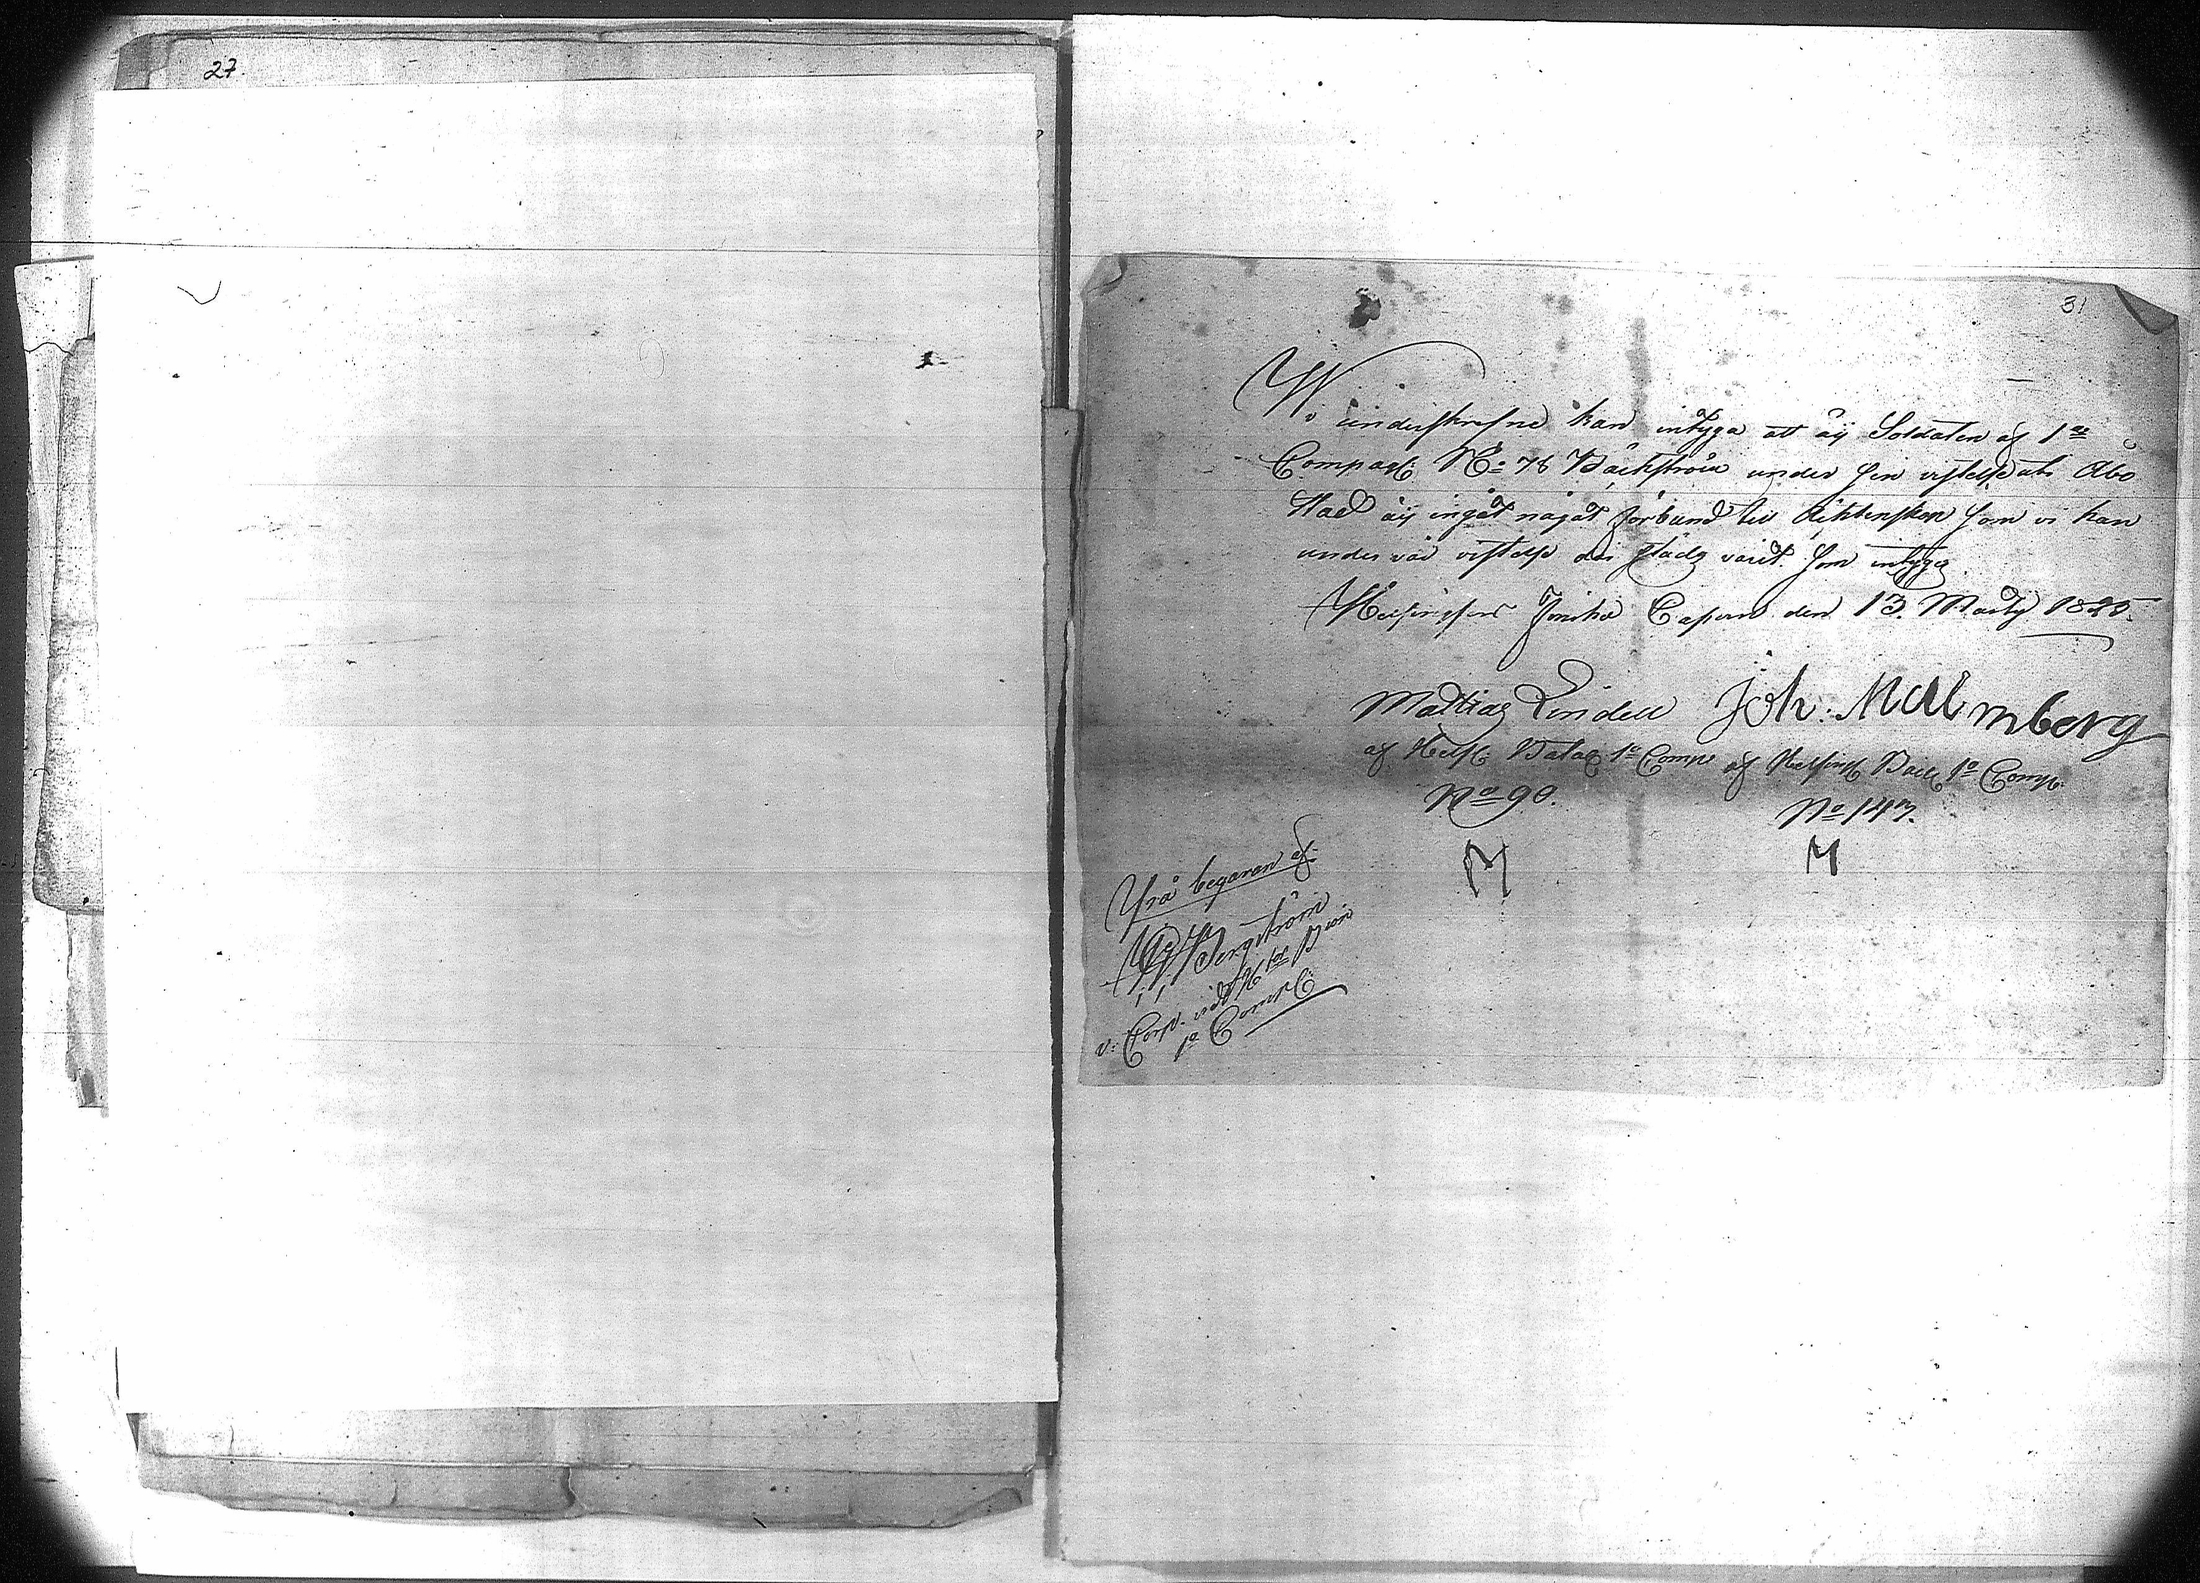 27.
31
Wi underskrefne kan intyga att äij Soldaten af 1ra
Compagl: No 78 Bäckström under sin vistelse uti Åbo
stad äij ingåt något förbund till Äkttenskap som vi kan
under vår vistelse där städz varit. som intygas
Helsingfors Finska Casern den 13. Martij 1825.
Mattias Lindell Joh: Malmberg
af Helsf: Batal 1a Comp: af Helsingf: Batl 1a Comp:
No 90. No 147.
M M
På begäran af
Bergström
v: Corp. vid H fot B:ion
1a Compl: